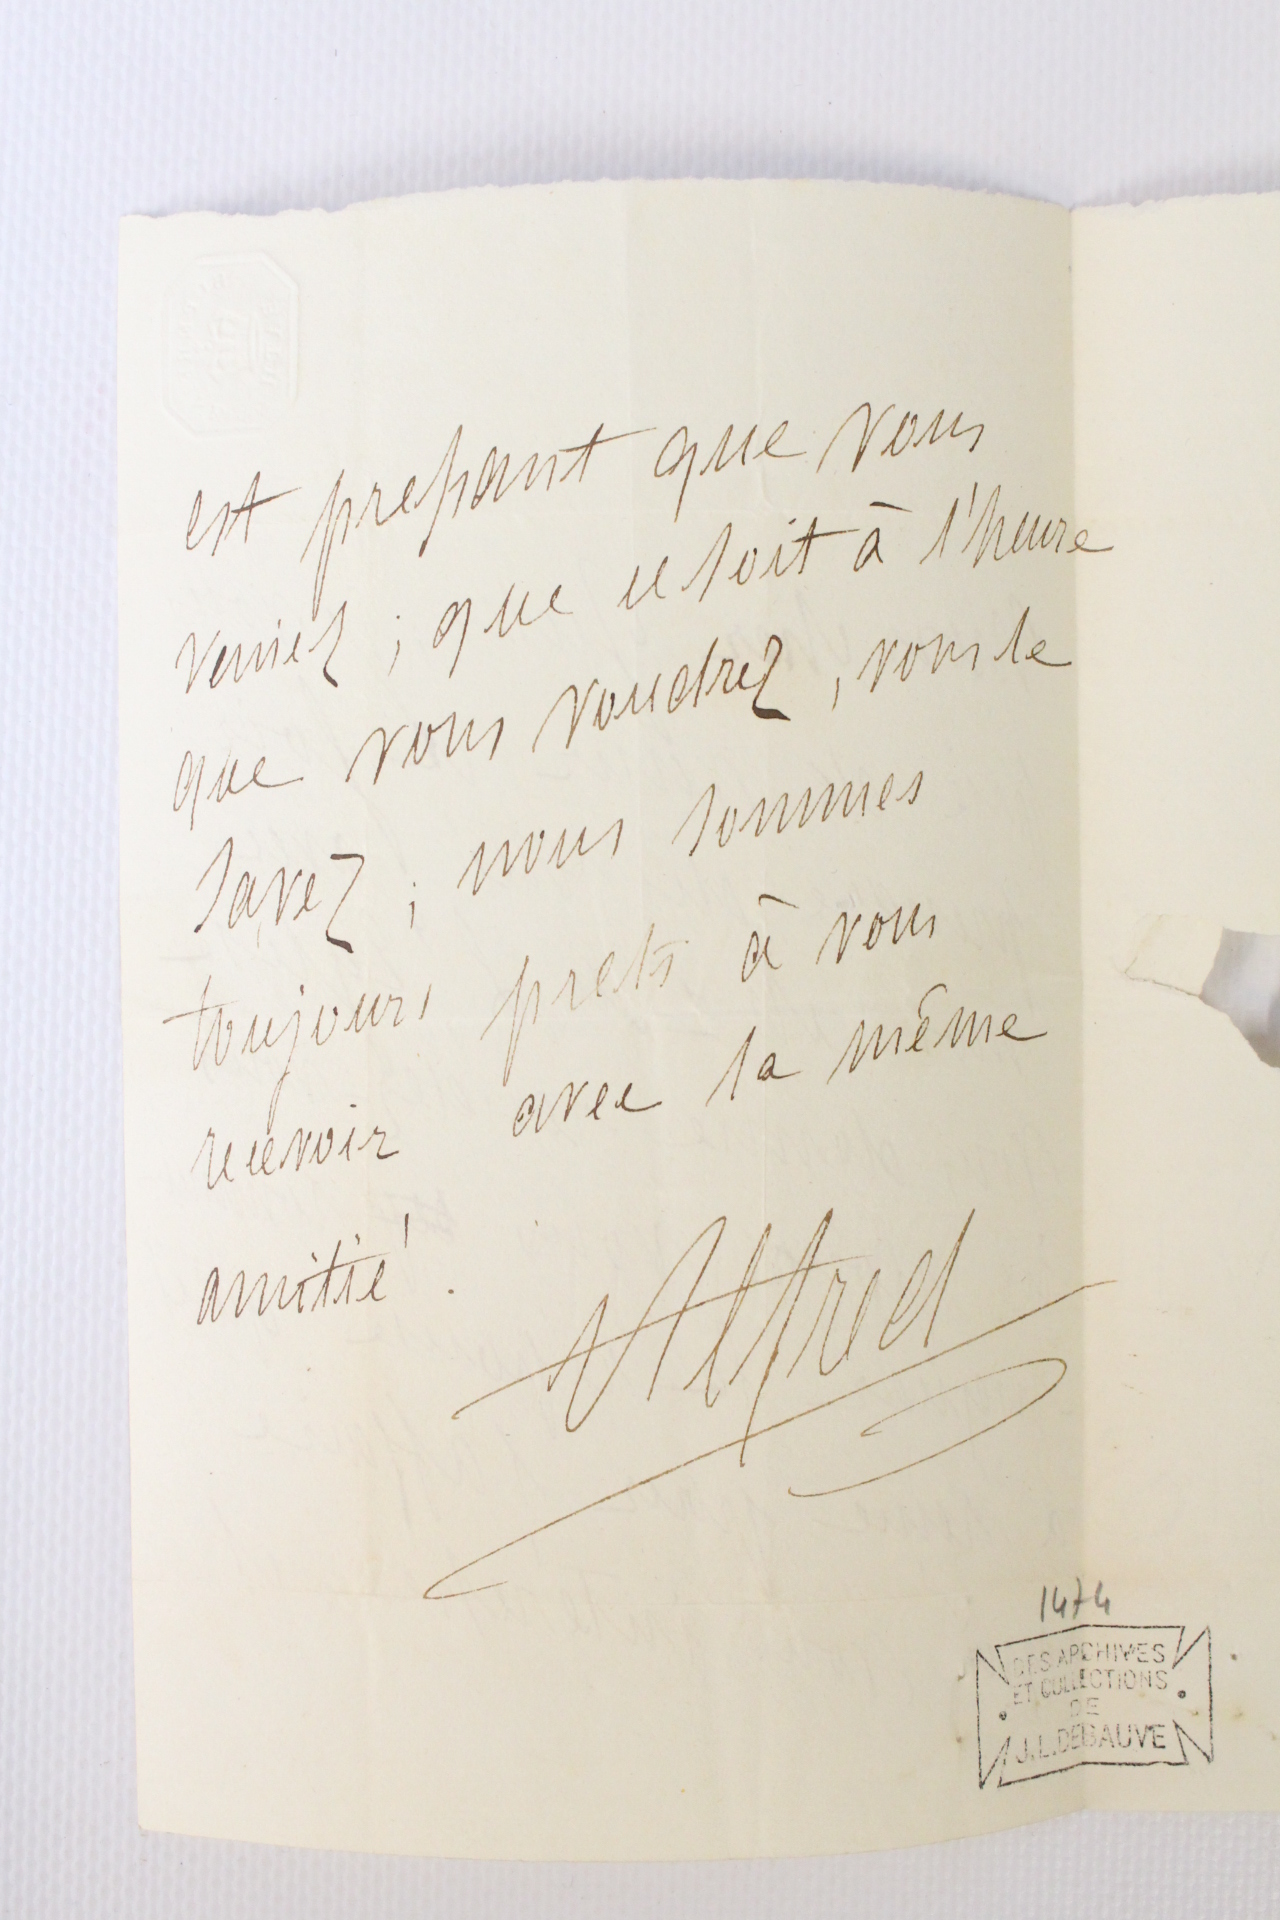 est pressant que vous
veniez ; que ce soit à l'heure
que vous voudrez, vous le
savez ; nous sommes
toujours prets à vous
recevoir avec la même
amitié.
Alfred
1474
DES ARCHIVES
ET COLLECTIONS
DE
J.L.DEBAUVE